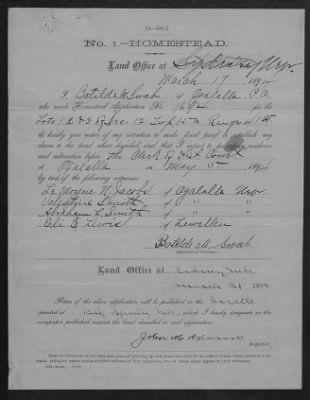 No. 1.—HOMESTEAD.
Land Office at Sidney Nebr.
March 17, 1894
I, Batilde M. Swab of Ogalalla P.O.
who made Homestead Application No. 1694 for the
Lots 1, 2 & 3 Sec 12 Twp 15 N Range 41 W
do hereby give notice of my intention to make final proof to establish my
claim to the land above described, and that I expect to prove my residence
and cultivation before the Clerk of Dist. Court
at Ogalalla on May 5th 1894
by two of the following witnesses:
Le Moyne N. Jacobs of Ogalalla Nebr
Valentine Smith of " "
Abraham L. Smith of " "
Eli E. Lewis of Lewellen
Batilde M. Swab
Land Office at Sidney Neb
March 21 1894
Notice of the above application will be published in the Gazette
printed at Big Spring Neb., which I hereby designate as the
newspaper published nearest the land described in said application.
John M. Adams
Register.